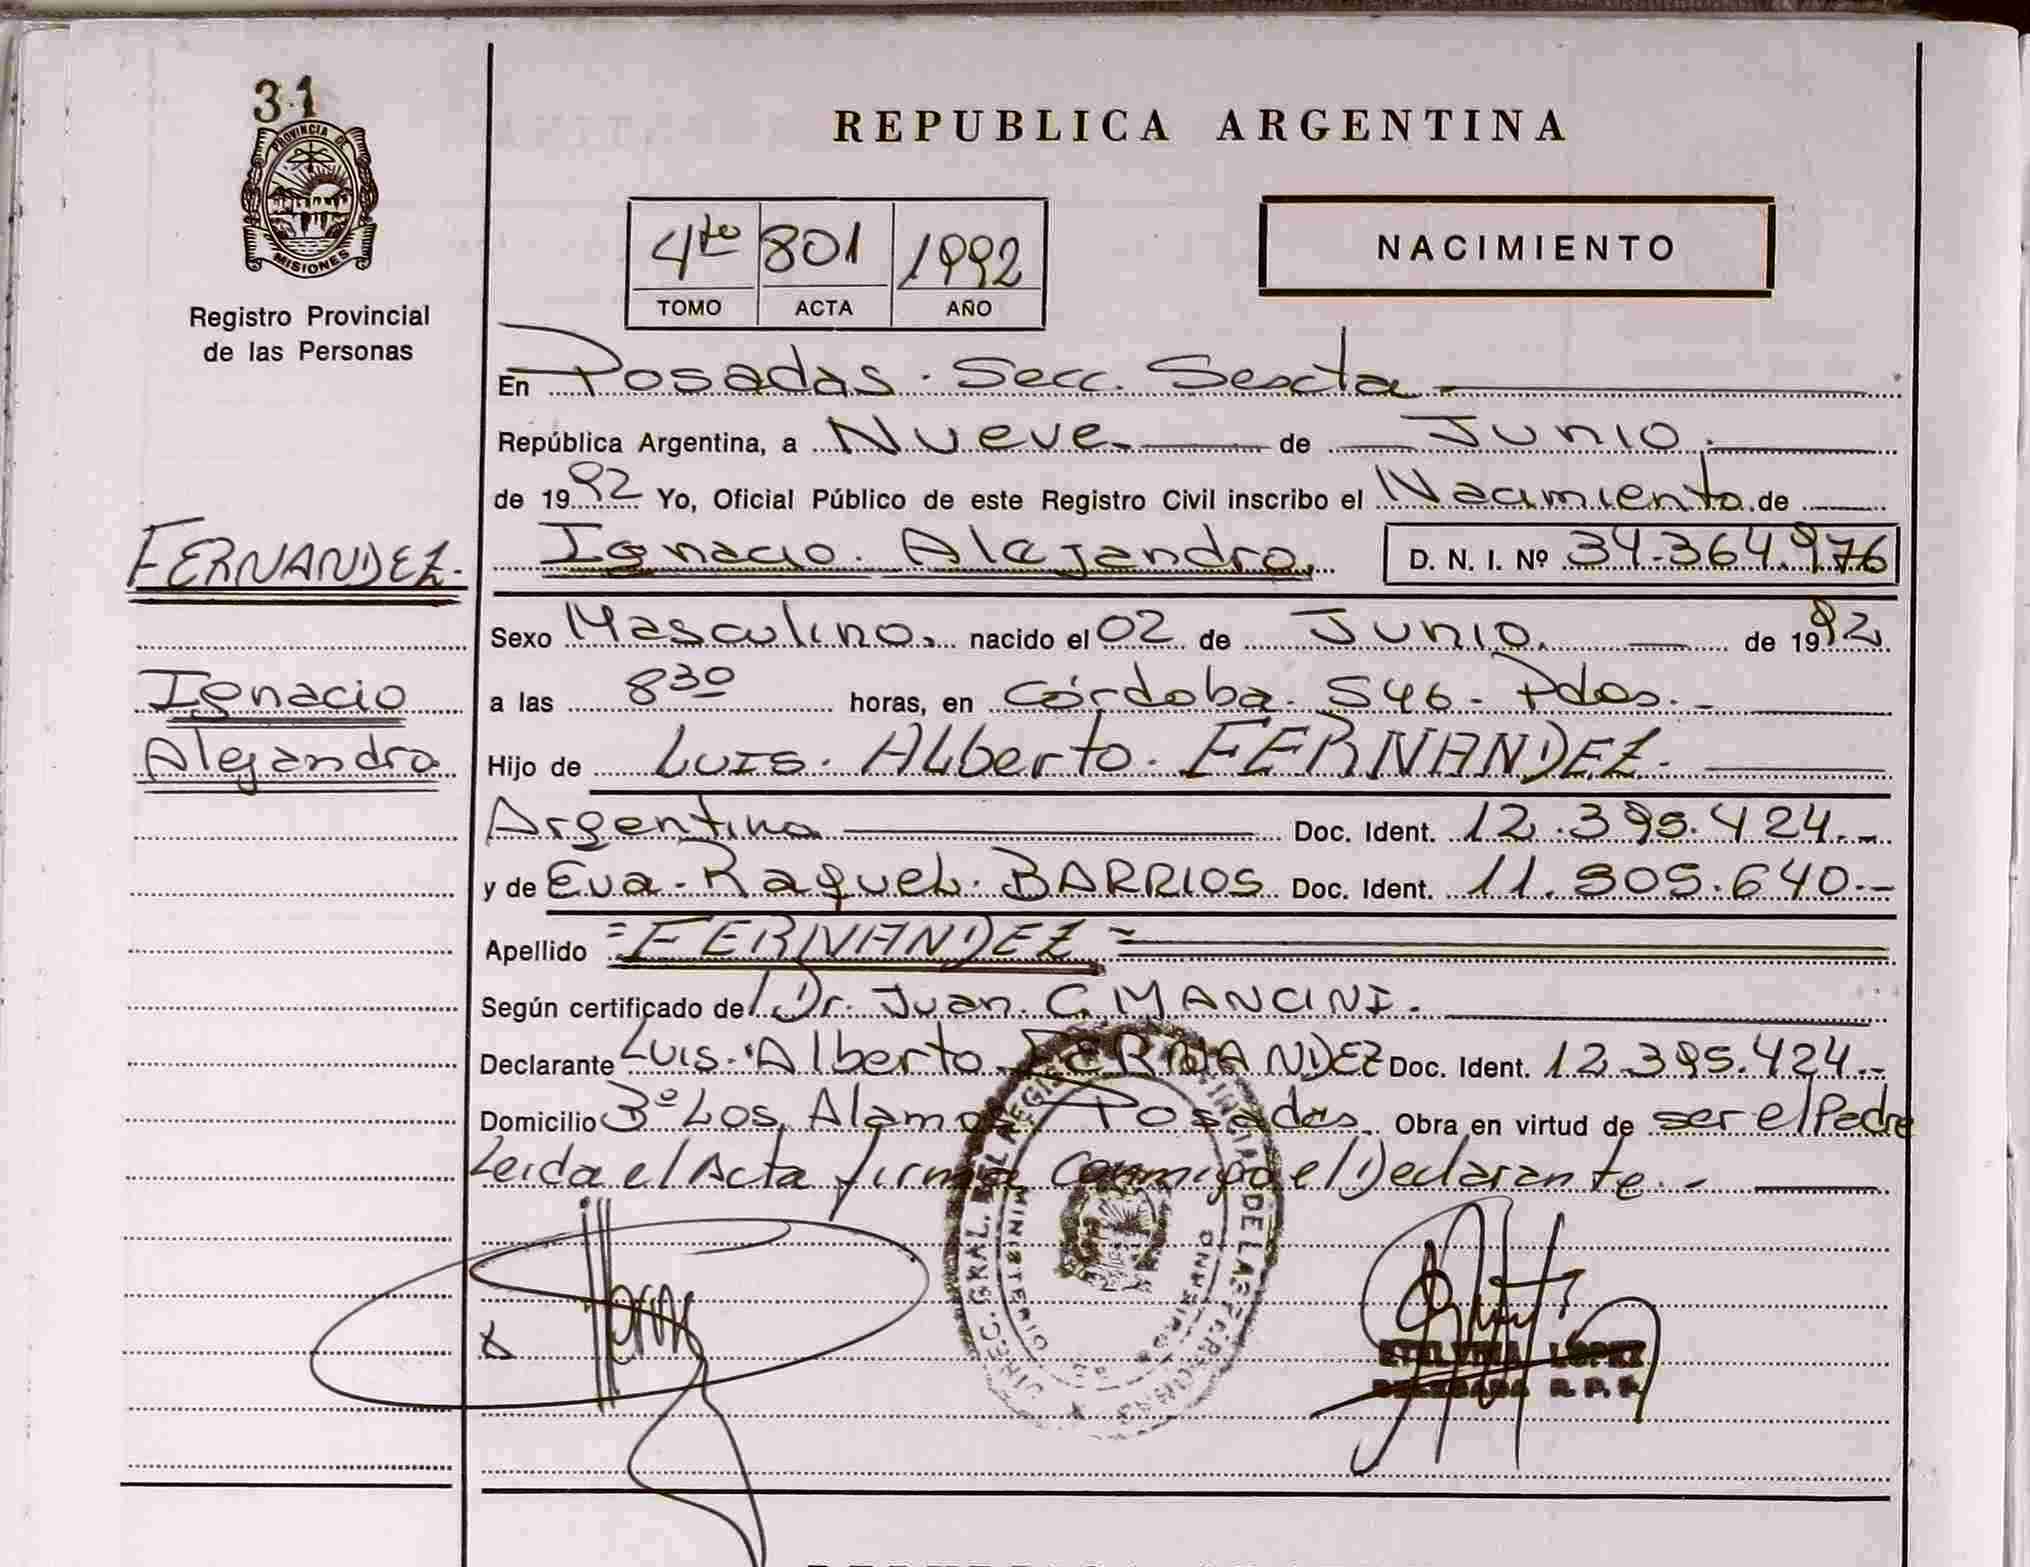 31
PROVINCIA DE
MISIONES
Registro Provincial
de las Personas
FERNANDEZ.
Ignacio
Alejandro
REPUBLICA ARGENTINA
4to 801 1992
TOMO ACTA AÑO
NACIMIENTO
En Posadas. Secc. Sexta
República Argentina, a Nueve de Junio.
de 1992 Yo, Oficial Público de este Registro Civil inscribo el Nacimiento de
Ignacio. Alejandro. D. N. I. Nº 34.364.976
Sexo Masculino. nacido el 02 de Junio. de 1992.
a las 830 horas, en Córdoba. 546. Pdas.
Hijo de Luis. Alberto. FERNANDEZ.
Argentino Doc. Ident. 12.395.424.-
y de Eva. Raquel. BARRIOS Doc. Ident. 11.805.640.-
Apellido =FERNANDEZ=
Según certificado de Dr. Juan. C. MANCINI.
Declarante Luis. Alberto FERNANDEZ Doc. Ident. 12.395.424.-
Domicilio Bº Los Alamos Posadas. Obra en virtud de ser el Padre
Leida el Acta firma Conmigo el Declarante.-
DIREC. GRAL. DE LAS PERSONAS
ETELVINA LOPEZ
DELEGADA R. P. P.